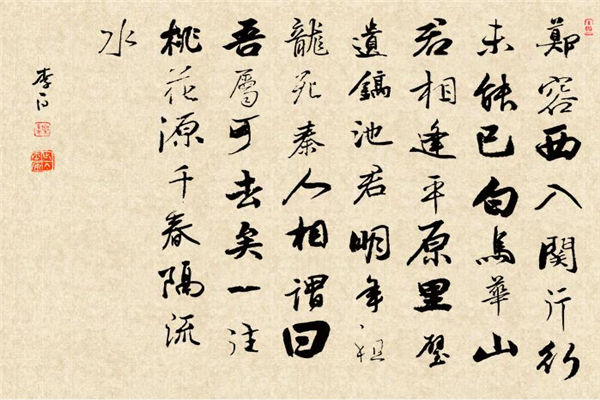 鄭容西入関行行
未能已白馬華山
君相逢平原里璧
遺鎬池君明年祖
龍死秦人相謂曰
吾屬可去矣一往
桃花源千春隔流
水
李白